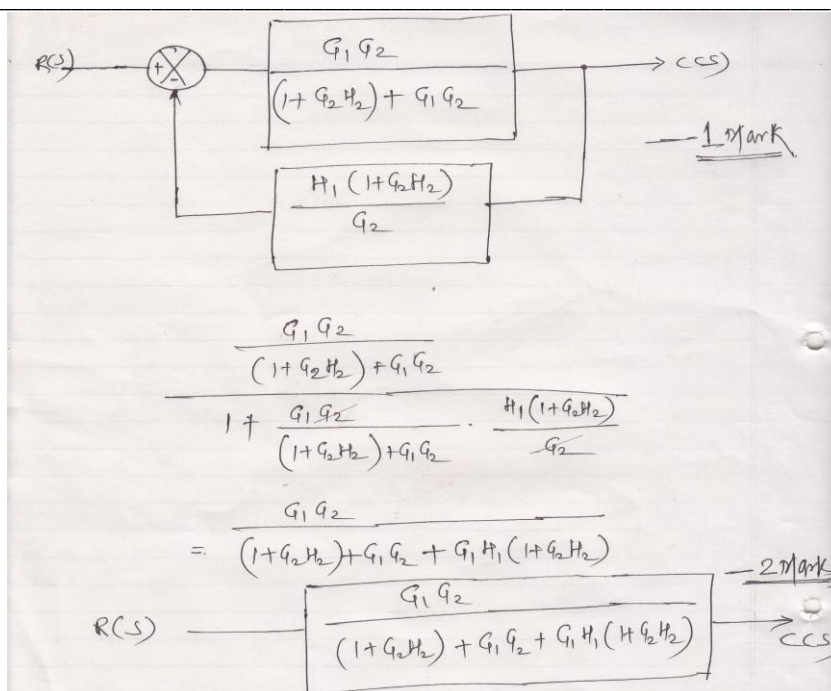 R(S) + - G₁ G₂ / (1 + G₂H₂) + G₁ G₂ C(S)
1 Mark
H₁ (1+G₂H₂) / G₂
G₁ G₂ / (1 + G₂H₂) + G₁ G₂
1 + G₁ G₂ / (1+G₂H₂)+G₁G₂ . H₁(1+G₂H₂) / G₂
= G₁ G₂ / (1+G₂H₂)+G₁G₂ + G₁H₁(1+G₂H₂)
2 Mark
R(S) G₁ G₂ / (1+G₂H₂) + G₁G₂ + G₁H₁(1+G₂H₂) C(S)